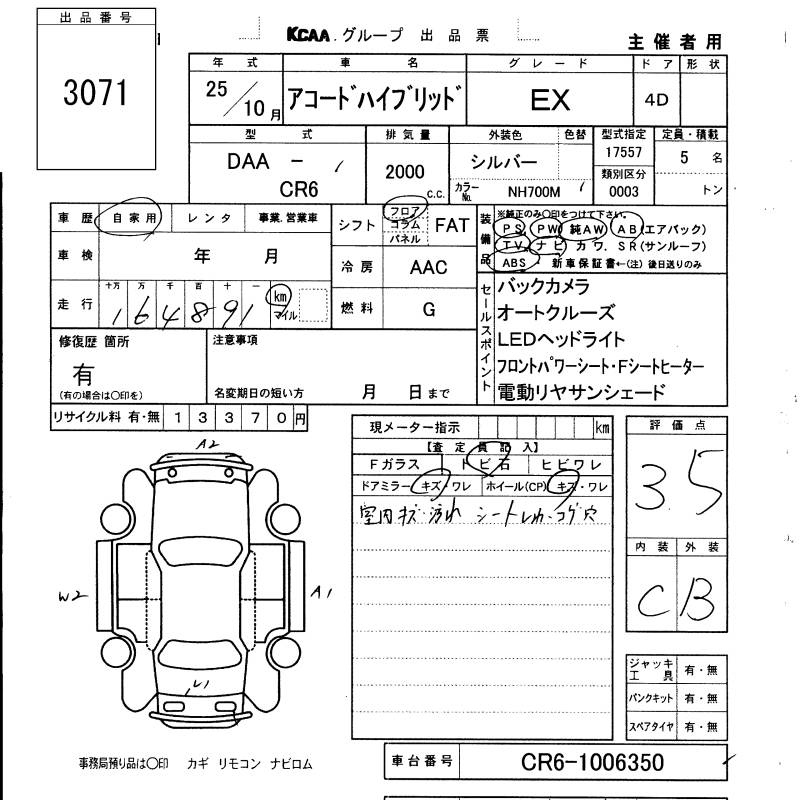 出品番号
3071
KCAA グループ 出品票
主催者用
年式 車名 グレード ドア 形状
25/10月 アコードハイブリッド EX 4D
型式 排気量 外装色 色替 型式指定 定員・積載
DAA - CR6 2000 c.c. シルバー 17557 5 名
カラーNo. NH700M 類別区分 0003 トン
車歴 自家用 レンタ 事業.営業車
車検 年 月
走行 十万 万 千 百 十 一
164891 km マイル
シフト フロア コラム パネル FAT
冷房 AAC
燃料 G
装備品 ※純正のみ〇印をつけて下さい。
PS PW 純AW AB(エアバック)
TV ナビ カワ. SR(サンルーフ)
ABS 新車保証書←(注) 後日送りのみ
セールスポイント
バックカメラ
オートクルーズ
LEDヘッドライト
フロントパワーシート・Fシートヒーター
電動リヤサンシェード
修復歴 箇所 注意事項
有
(有の場合は〇印を) 名変期日の短い方 月 日まで
リサイクル料 有・無 13370円
現メーター指示 km
【査定員記入】
Fガラス トビ石 ヒビワレ
ドアミラー キズ・ワレ ホイール(CP) キズ・ワレ
室内キズ・汚れ シート
コゲ穴
評価点
3.5
内装 外装
C B
A2
W2
A1
ジャッキ工具 有・無
パンクキット 有・無
スペアタイヤ 有・無
事務局預り品は〇印 カギ リモコン ナビロム
車台番号 CR6-1006350